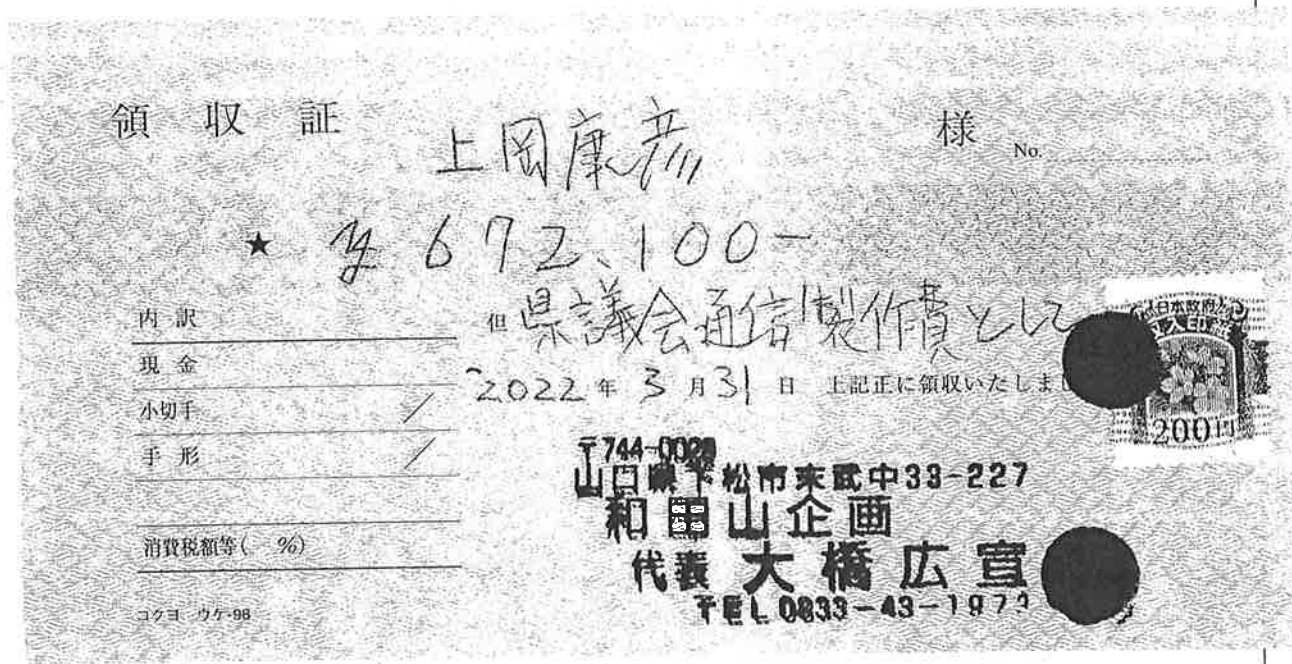 領 収 証
上岡康彦 様
No.
★ ¥672,100-
但 県議会通信製作費として
2022年3月31日 上記正に領収いたしまし
内訳
現金
小切手
手形
消費税額等( %)
コクヨ ウケ-98
日本政府
収入印紙
200円
〒744-002
山口県下松市末武中33-227
和田山企画
代表 大橋広宣
TEL 0833-43-197